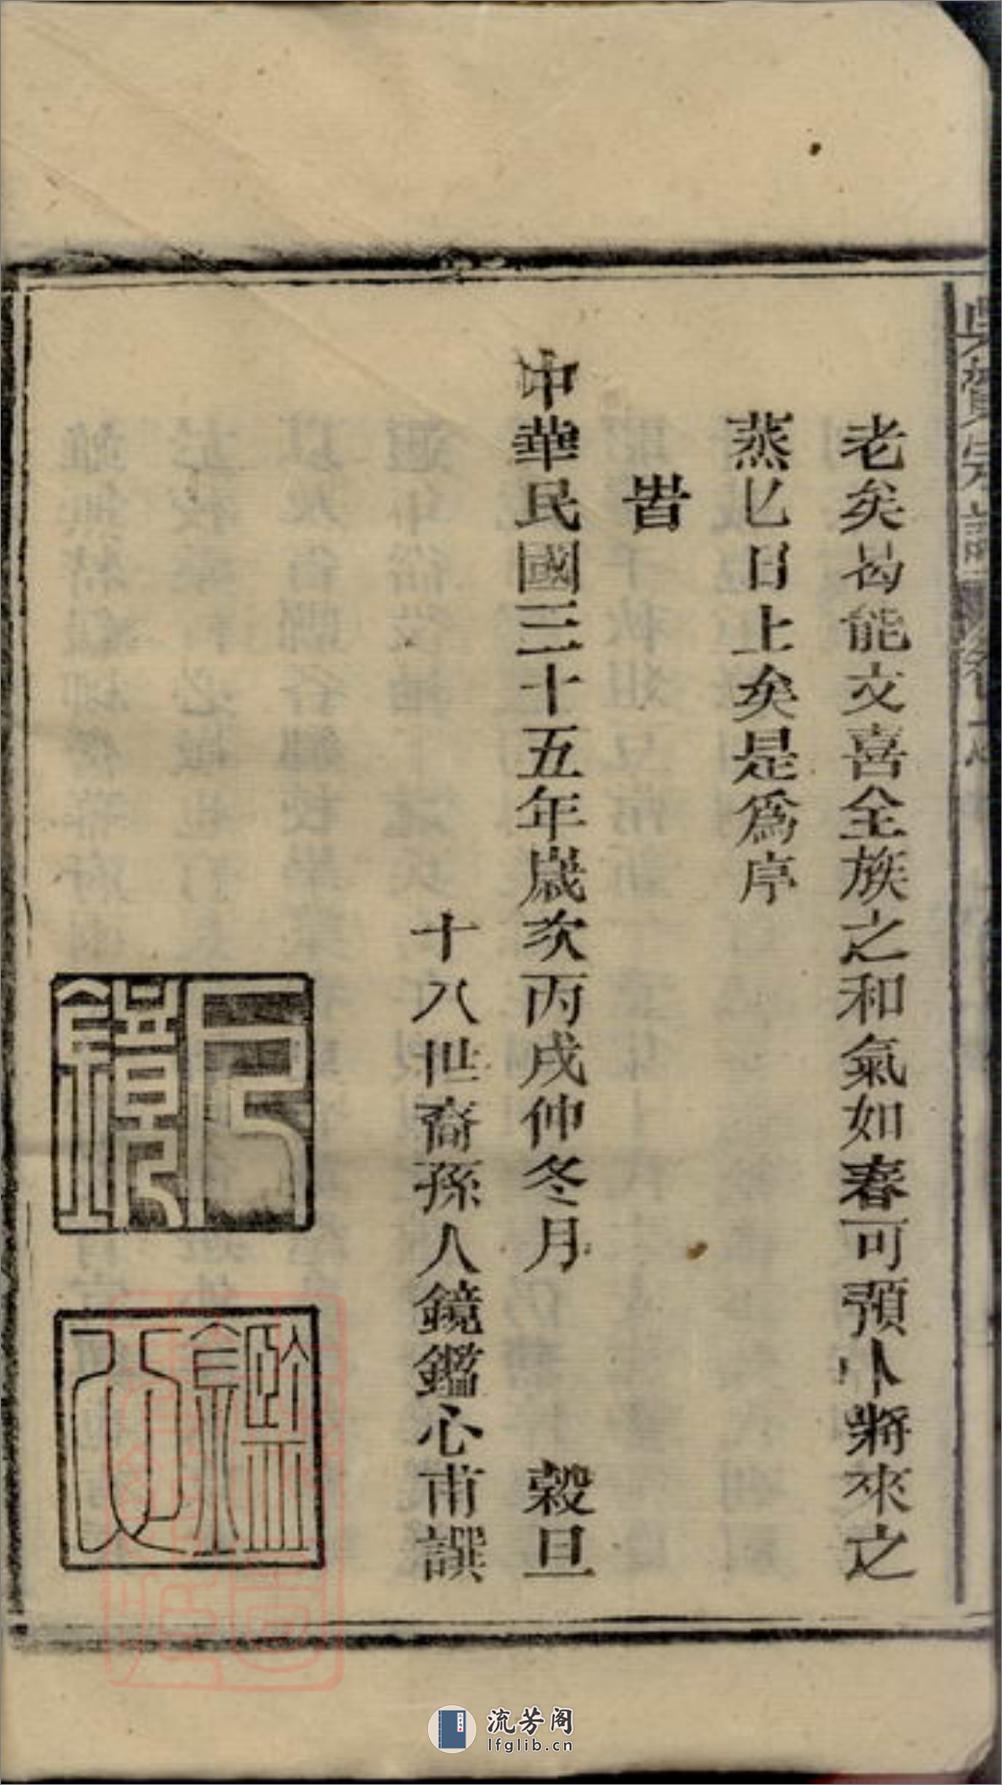 老矣曷能文喜全族之和氣如春可預卜將來之
蒸蒸日上矣是爲序
旹
中華民國三十五年歲次丙戌仲冬月 穀旦
十八世裔孫人鏡鑑心甫譔
人鏡
鑑心
流芳阁
lfglib.cn